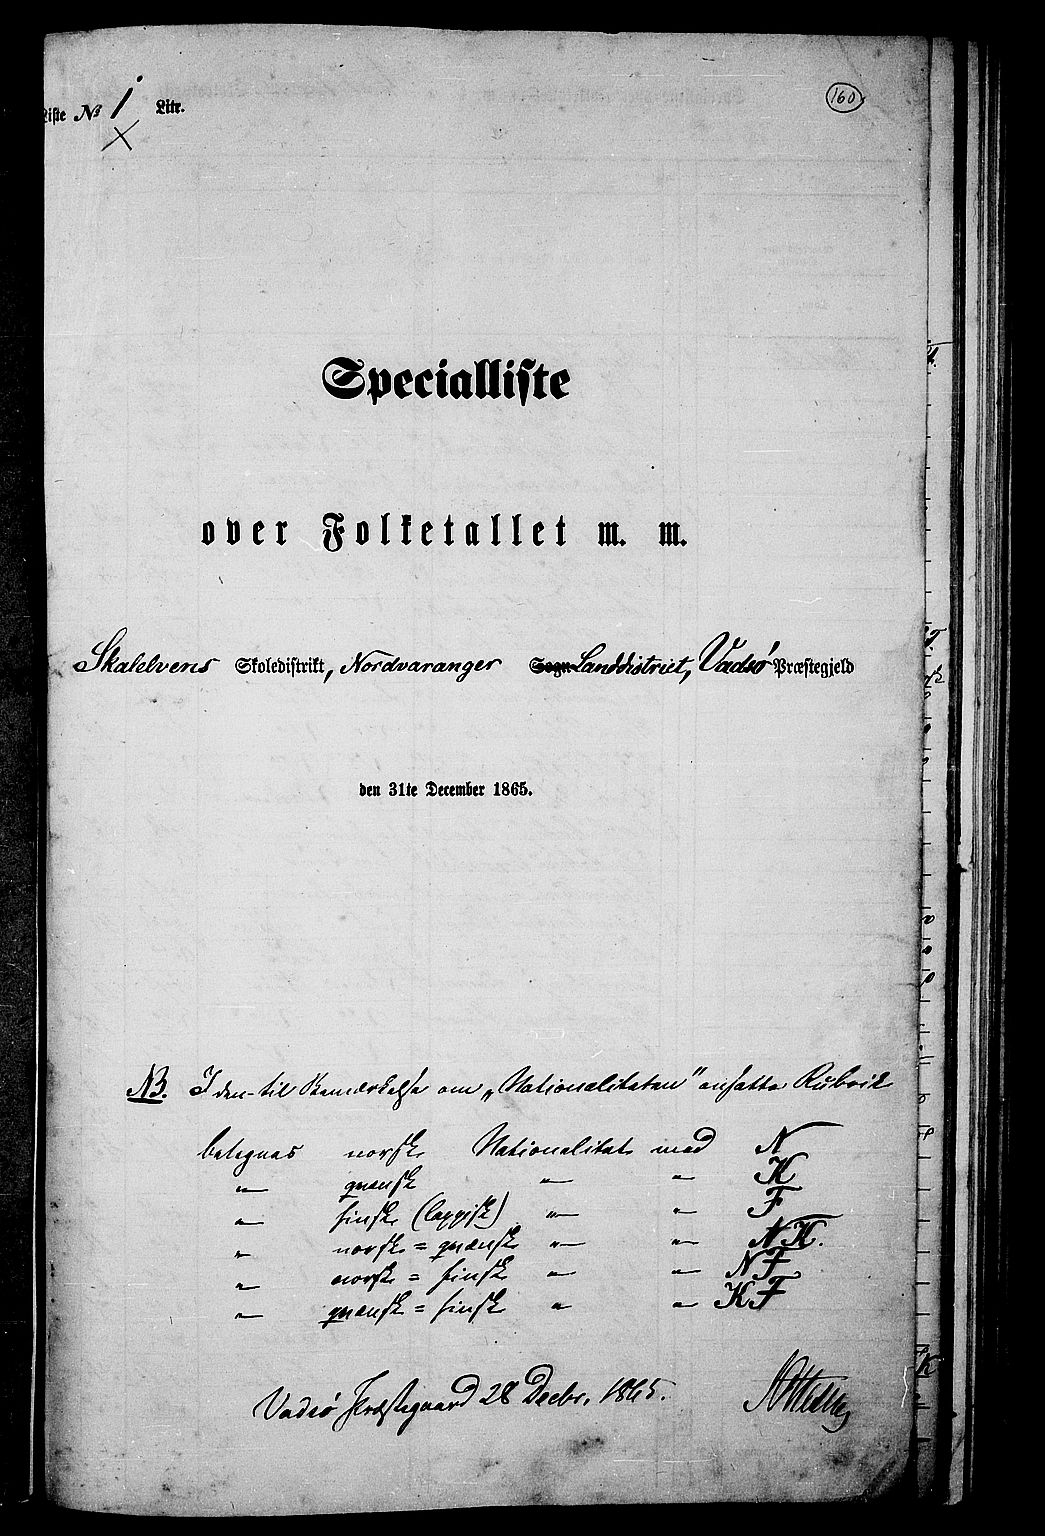 Liste № 1 Litr.
160
Specialliste
over Folketallet m. m.
Skalelvens Skoledistrikt, Nordvaranger Sogn Landdistrict, Vadsø Præstegjeld
den 31te December 1865.
NB. I den til Bemærkelse om „Nationaliteten” ansatte Rubrik
betegnes norsk Nationalitet med N
〃 qvænsk 〃 〃 K
〃 finsk (lappisk) 〃 〃 F
〃 norsk = qvænsk 〃 〃 NK.
〃 norsk = finsk 〃 〃 NF
〃 qvænsk = finsk 〃 〃 KF
Vadsø Præstegaard 28 Decbr. 1865.